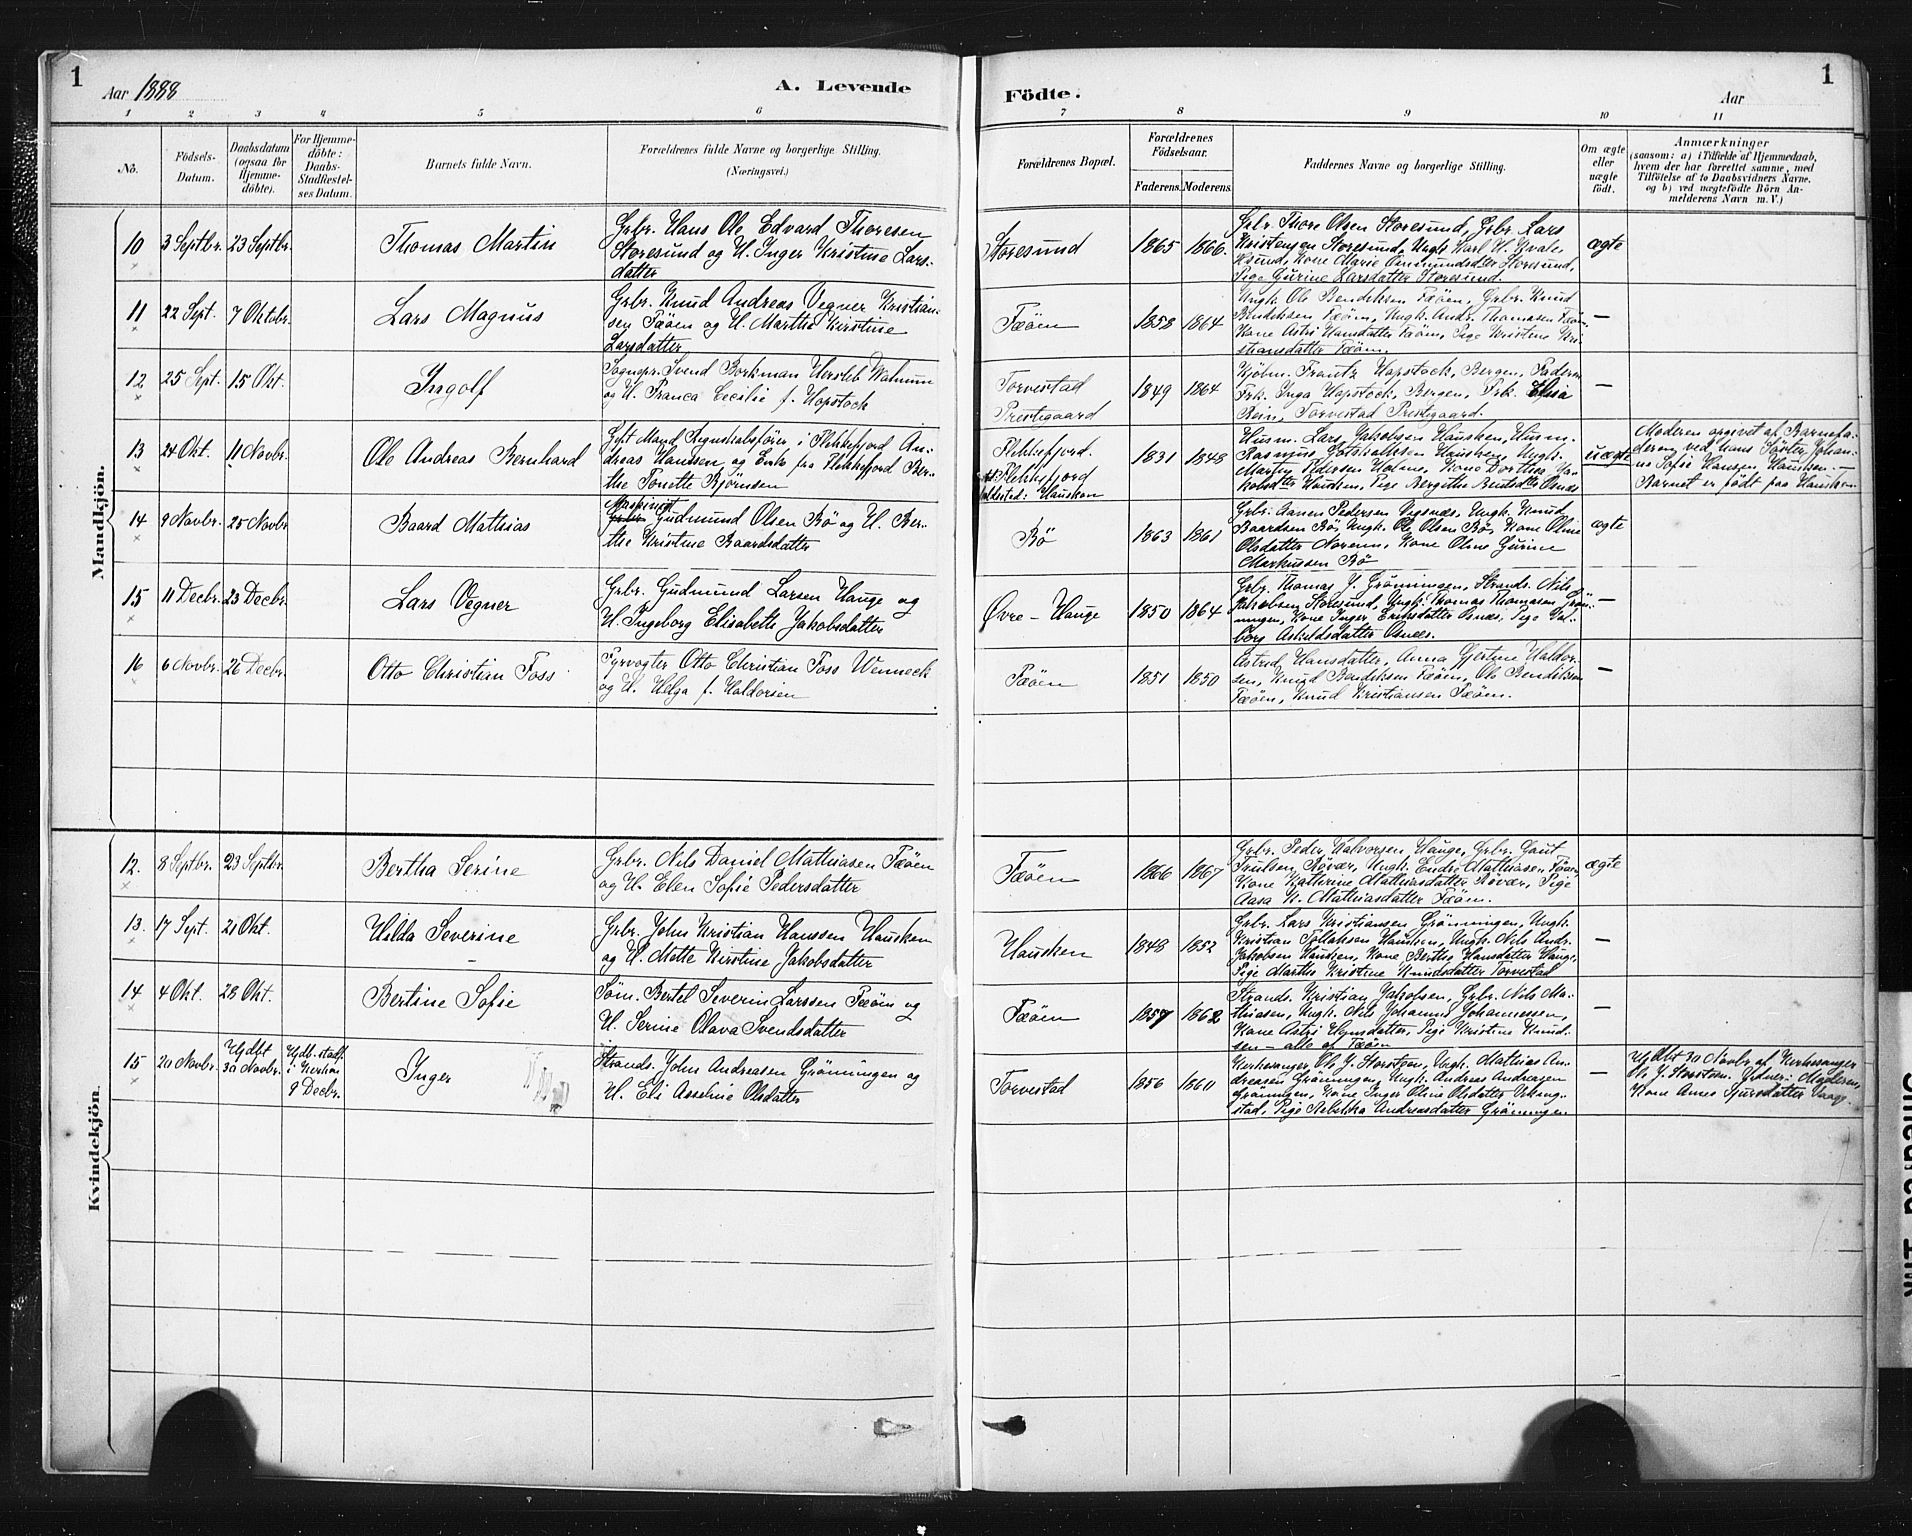 1
Aar 1888
A. Levende
Födte.
Aar
1
1 2 3 4 5 6 7 8 9 10 11
No.
Födsels-
Datum.
Daabsdatum
(ogsaa for
Hjemme-
döbte).
For Hjemme-
döbte:
Daabs-
Stadfæstel-
ses Datum.
Barnets fulde Navn.
Forældrenes fulde Navne og borgerlige Stilling.
(Næringsvei.)
Forældrenes Bopæl.
Forældrenes
Födselsaar.
Faderens. Moderens.
Faddernes Navne og borgerlige Stilling.
Om ægte
eller
uægte
födt.
Anmærkninger
(saasom: a) i Tilfælde af Hjemmedaab,
hvem der har forrettet samme, med
Tilföielse af to Daabsvidners Navne,
og b) ved uægtefödte Börn An-
melderens Navn m. V.)
Mandkjön.
10 3 Septbr. 23 Septbr. Thomas Martin
Grbr. Hans Ole Edvard Thoresen
Storesund og H. Inger Kristine Lars-
datter
Storesund 1865 1866.
Grbr. Thore Olsen Storesund, Grbr. Lars
Kristensen Storesund, Ungk. Karl H. Kvale-
sund, Kone Marie Ommundsdtr Storesund,
Pige Gurine Larsdatter Storesund
ægte
11 22 Sept. 7 Oktbr. Lars Magnus
Grbr. Knud Andreas Vegner Kristian-
sen Fæøen og H. Marthe Kirstine
Larsdatter
Fæøen 1858 1864
Ungk. Ole Bendiksen Fæøen, Grbr. Knud
Bendiksen Fæøen, Ungk. Andr. Thomasen Fæøen
Kone Astri Hansdatter Fæøen, Pige Kristine Kri-
stiansdatter Fæøen.
—
12 25 Sept. 15 Okt. Ingolf
Sognepr. Svend Borkman Hersleb Walnum
og H. Franca Cecilie f. Hopstock
Torvestad
Prestegaard
1849 1864
Kjøbm. Frantz Hopstock, Bergen, Faderen
Frk. Inga Hopstock, Bergen, Frk. Elisa
Rein, Torvestad Prestegaard.
—
13 24 Okt. 11 Novbr. Ole Andreas Bernhard
Gift Mand Regnskabsfører i Flekkefjord An-
dreas Hanssen og Enke fra Flekkefjord Ber-
the Tonette Bjørnsen
Flekkefjord.
Flekkefjord
Hausken
1831 1848
Husm. Lars Jakobsen Hausken, Husm.
Rasmus Gotskalksen Hausken, Ungk.
Martin Pedersen Holme, Kone Dorthea Ja-
kobsdtr Hausken, Pige Bergithe Bentsdtr Osnæs
uægte
Moderen opgivet af Barnefa-
deren ved hans Søster Johan-
ne Sofie Hansen Hausken. —
Barnet er født paa Hausken
14 9 Novbr. 25 Novbr Baard Mathias
Maskinist
Grbr. Gudmund Olsen Bø og H. Ber-
the Kristine Baardsdatter
Bø 1863 1861
Grbr. Aanen Pedersen Vigsnæs, Ungk. Knud
Baardsen Bø, Ungk. Ole Olsen Bø, Kone Oline
Olsdatter Norem, Kone Oline Gurine
Markussen Bø
ægte
15 11 Decbr. 23 Decbr. Lars Vegner
Grbr. Gudmund Larsen Hauge og
H. Ingeborg Elisabeth Jakobsdatter
Øvre-Hauge 1850 1864
Grbr. Thomas J. Grønningen, Strands. Nils
Jakobsen Storesund, Ungk. Thomas Thomasen Grøn-
ningen, Kone Inger Eriksdatter Osnæs, Pige Val-
borg Askildsdatter Osnæs.
—
16 6 Novbr. 26 Decbr. Otto Christian Foss
Fyrvogter Otto Christian Foss Wenneck
og H. Helga f. Haldorsen
Fæøen 1851 1850
Astrid Hansdatter, Anna Gjertine Haldor-
sen, Knud Bendiksen Fæøen, Ole Bendiksen
Fæøen, Knud Kristiansen Fæøen.
—
Kvindekjön.
12. 8 Septbr. 23 Septbr. Bertha Serine
Grbr. Nils Daniel Mathiasen Fæøen
og H. Elen Sofie Pedersdatter
Fæøen 1866 1867
Grbr. Peder Halvorsen Hauge, Grbr. Gaut
Trulsen Røvær, Ungk. Endre Mathiasen Fæøen
Kone Kathrine Mathiasdatter Røvær, Pige
Aasa K. Mathiasdatter Fæøen.
ægte
13. 17 Sept. 21 Okt. Hilda Severine
Grbr. John Kristian Hanssen Hausken
og H. Mette Kirstine Jakobsdatter
Hausken 1848 1852
Grbr. Lars Kristiansen Grønningen, Ungk.
Kristian Tollaksen Hausken, Ungk. Nils Andr.
Jakobsen Hausken, Kone Berthe Hansdatter Hauge,
Pige Marthe Kristine Knudsdatter Torvestad
—
14 4 Okt. 28 Okt. Bertine Sofie
Søm. Bertel Severin Larssen Fæøen og
H. Serine Olava Svendsdatter
Fæøen 1857 1862
Strands. Kristian Jakobsen, Grbr. Nils Ma-
thiasen, Ungk. Nils Johannes Johannessen,
Kone Astri Hansdatter, Pige Kristine Knud-
sen — alle af Fæøen
—
15 20 Novbr. Hjdbt
30 Novbr.
Hjdb. stadf.
i Kirken
9 Decbr.
Inger
Strands. John Andreasen Grønningen og
H. Eli Asseline Olsdatter
Torvestad 1856 1860
Kirkesanger Ole J. Storstøen, Ungk. Mathias An-
dreasen Grønningen, Ungk. Andreas Andreasen
Grønningen, Kone Inger Oline Olsdatter Viking-
stad, Pige Rebekka Andreasdatter Grønningen
—
Hjdbt 30 Novbr af Kirkesanger
Ole J. Storstøen. Vidner: Moderen,
Kone Anne Sjursdatter Vaage.